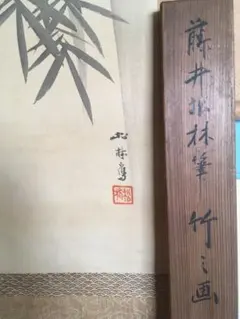 藤井松林筆 竹之画
松林寫